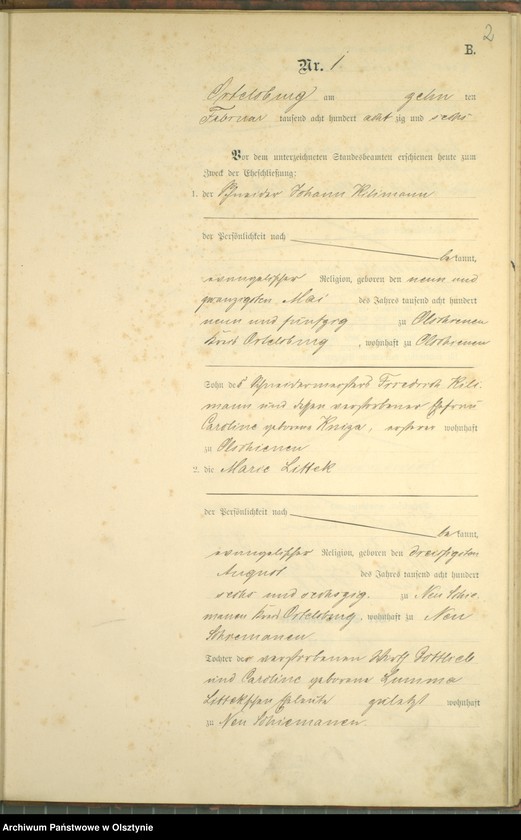 2
B.
Nr. 1
Ortelsburg am zehn ten
Februar tausend acht hundert acht zig und sechs
Vor dem unterzeichneten Standesbeamten erschienen heute zum
Zweck der Eheschließung:
1. der Schneider Johann Kilimann
der Persönlichkeit nach
be kannt,
evangelischer Religion, geboren den neun und
zwanzigsten Mai des Jahres tausend acht hundert
neun und fünfzig zu Olschienen
Kreis Ortelsburg, wohnhaft zu Olschienen
Sohn des Schneidermeisters Friedrich Kili-
mann und dessen verstorbener Ehefrau
Caroline geborene Kniza, ersterer wohnhaft
zu Olschienen
2. die Marie Littek
der Persönlichkeit nach
be kannt,
evangelischer Religion, geboren den dreißigsten
August des Jahres tausend acht hundert
sechs und sechszig. zu Neu Schie-
manen Kreis Ortelsburg, wohnhaft zu Neu
Schiemanen
Tochter der verstorbenen Gottlieb
und Caroline geborene
Littekschen Eheleute zuletzt wohnhaft
zu Neu Schiemanen.
Archiwum Państwowe w Olsztynie